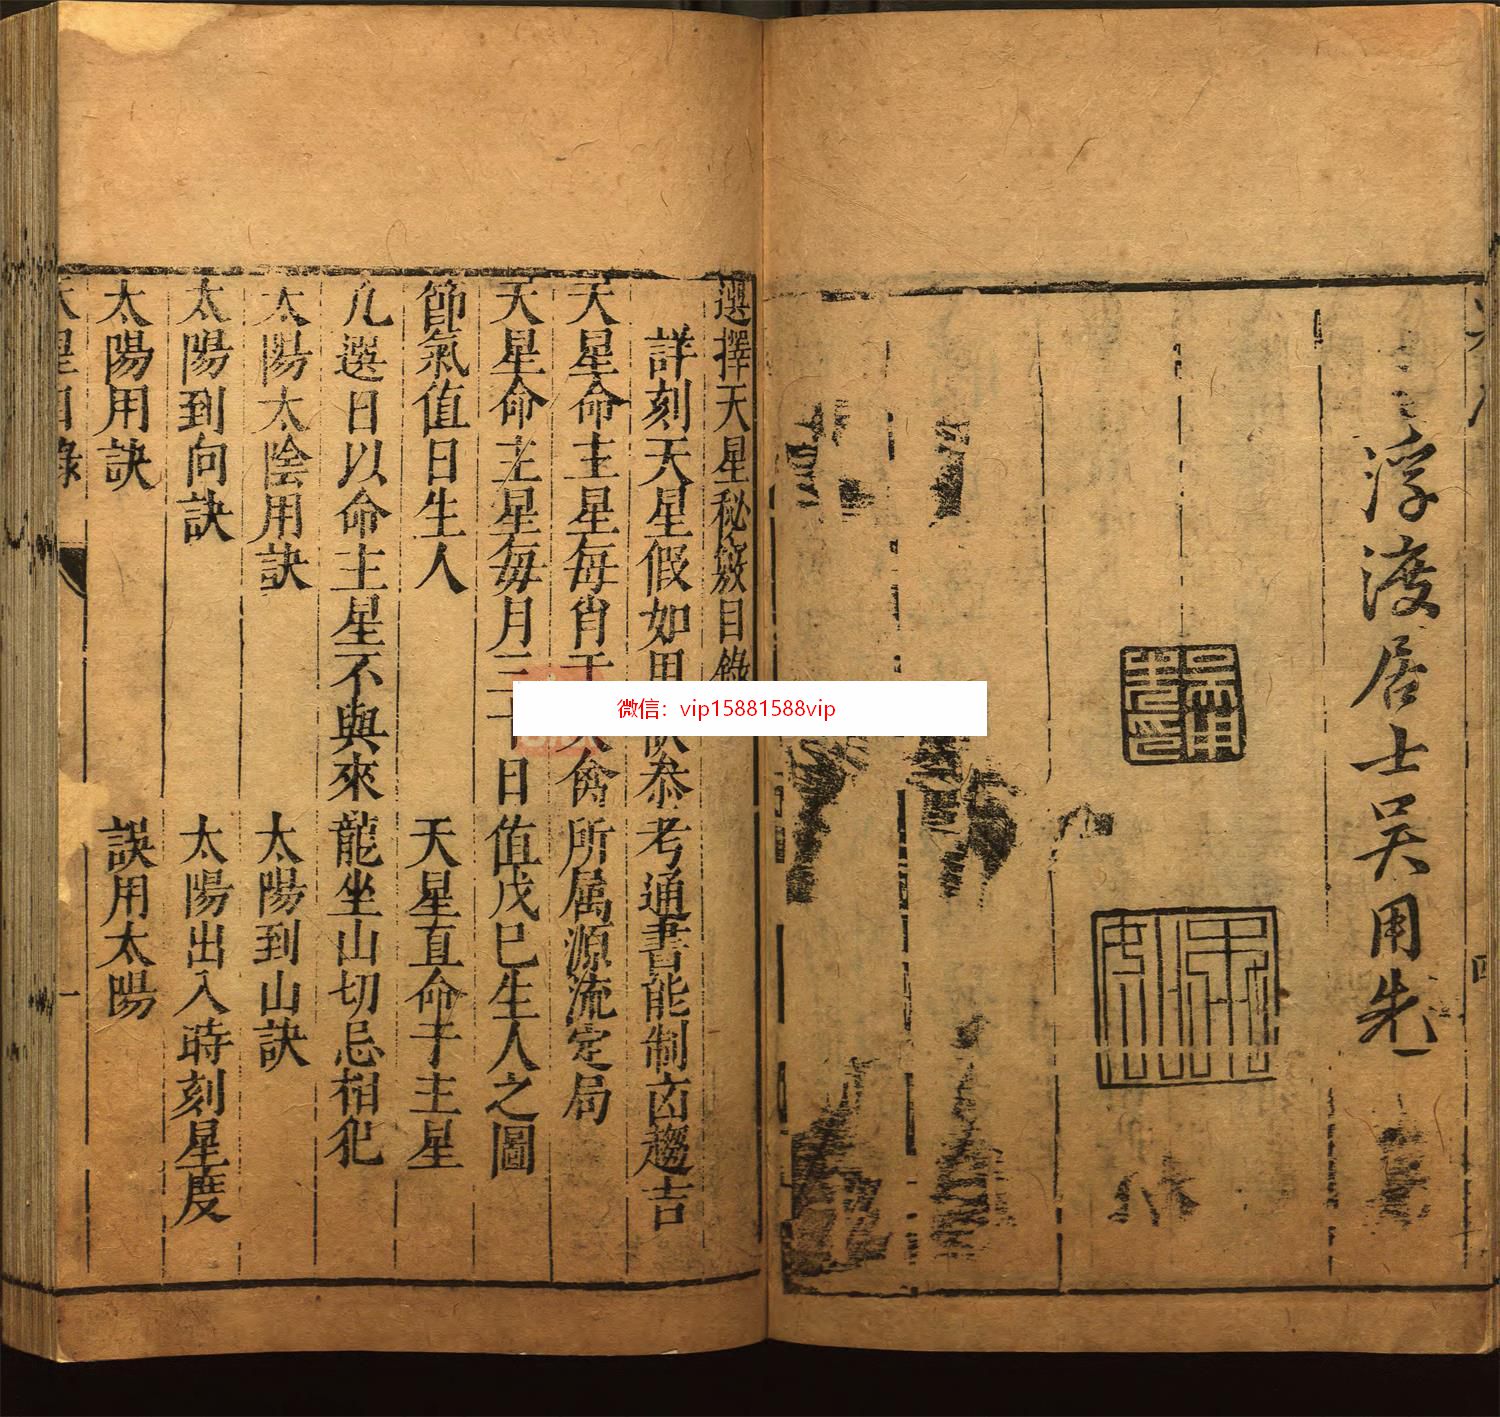 浮渡居士吳用先
選擇天星秘竅目錄
詳刻天星假如用 叅考通書能制凶趨吉
天星命主星每肖 禽所属源流定局
天星命主星每月三十日值戊巳生人之圖
節氣值日生人 天星直命于主星
凡選日以命主星不與來龍坐山切忌相犯
太陽太陰用訣 太陽到山訣
太陽到向訣 太陽出入時刻星度
太陽用訣 誤用太陽
天星目錄 一
微信：vip15881588vip